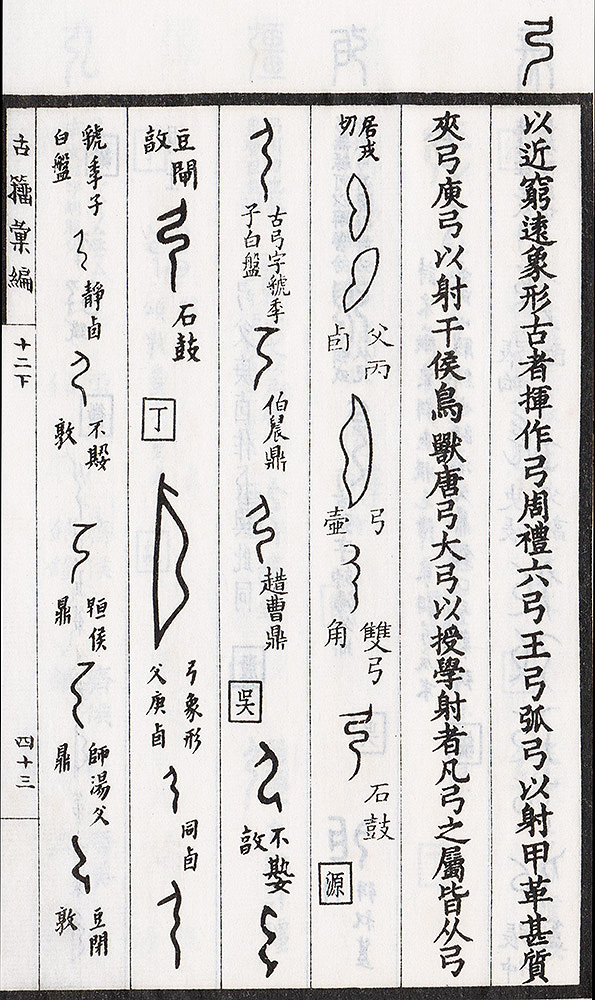 弓
以近窮遠象形古者揮作弓周禮六弓王弓弧弓以射甲革甚質
夾弓庾弓以射干侯鳥獸唐弓大弓以授學射者凡弓之屬皆从弓
居戎
切
父丙
卣
弓
壺
雙弓
角
石鼓
源
古弓字虢季
子白盤
伯晨鼎
趞曹鼎
吳
不𡠗
敦
豆閉
敦
石鼓
丁
弓象形
父庚卣
同卣
虢季子
白盤
靜卣
不𡢁
敦
侯
鼎
師湯父
鼎
豆閉
敦
古籀彙編
十二下
四十三